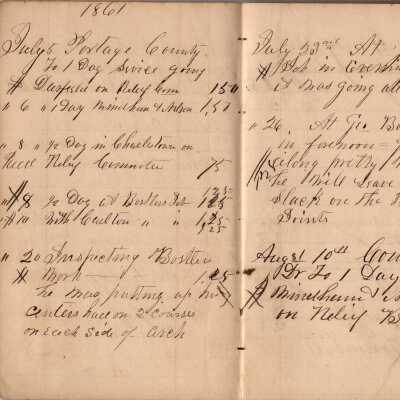 1861
July 5 Portage County
To 1 Day Service going
Deerfield on Relief 1,50
" 6 " 1 Day Mineham & Nelson 1,50
" 8 " ½ Day in Charlestown on
Relief Committee 75
8 ½ Day at Bostler Job 1,25
With Carlton " " 1,25
" 20 Inspecting Bostler
Work 1,25
He was putting up
Centers had on 2 Courses
on each side of Arch
July 23rd At
Job in
it was going
" 26. At Geo. Bo
in forenoon
along pretty
he will leave
slack on the
Joints
Augst 10th Coun
Dr To 1 Day
Mineham &
on Relief